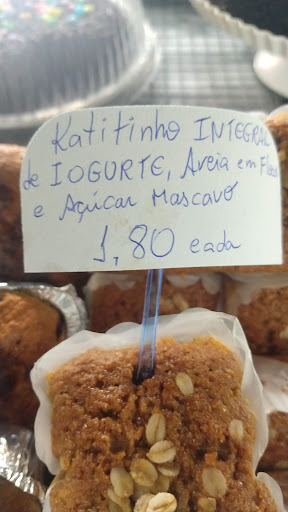 Katitinho INTEGRAL
de IOGURTE, Aveia em Flocos
e Açúcar Mascavo
1,80 cada